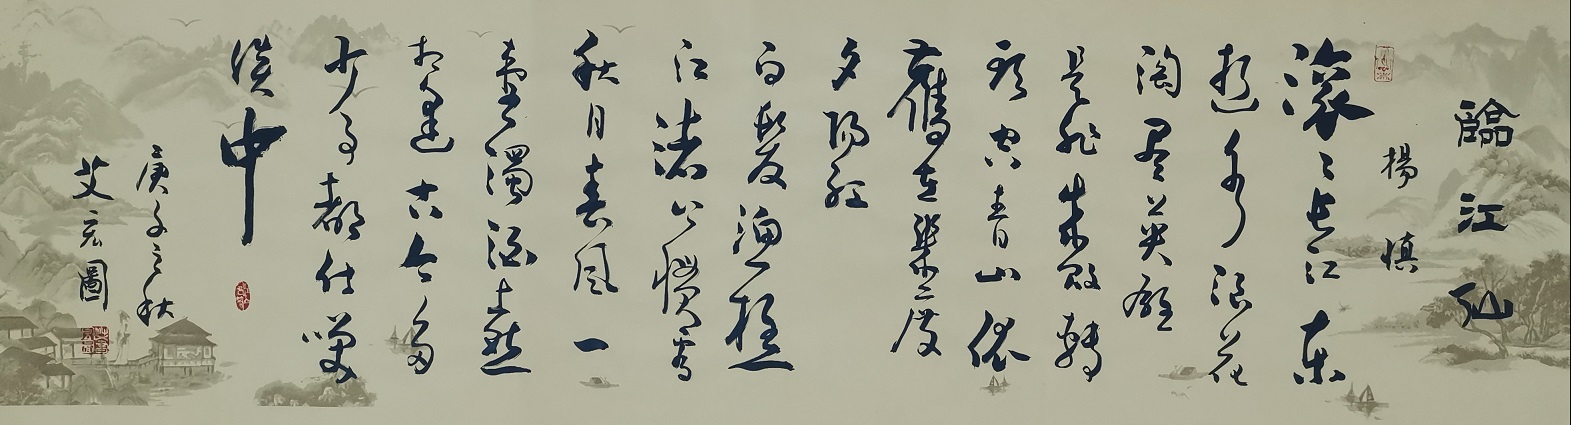 臨江仙
楊慎
滚〻长江东
逝水浪花
淘尽英雄
是非成败转
头空青山依
舊在幾度
夕阳红
白髮渔樵
江渚上惯看
秋月春风一
壶濁酒喜
相逢古今多
少事都付笑
谈中
庚子之秋
艾宏圖